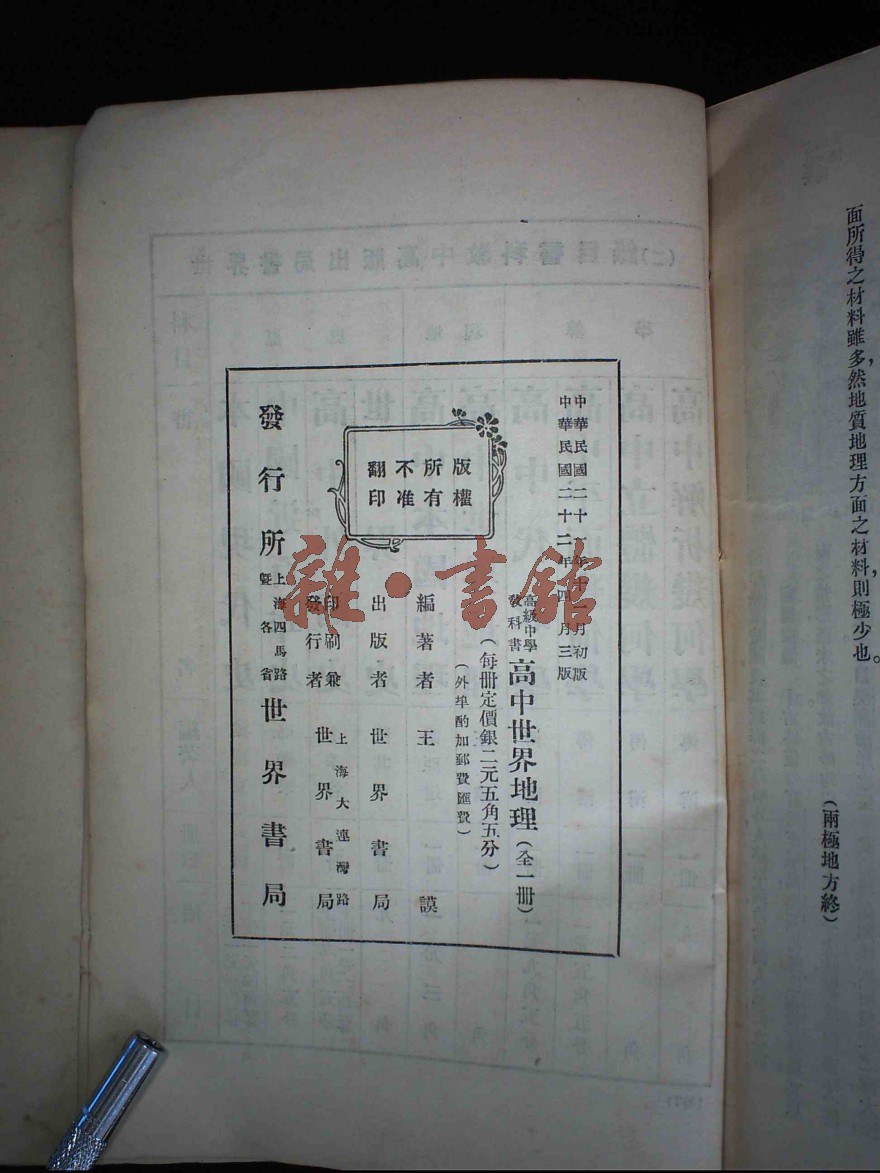 面所得之材料雖多，然地質地理方面之材料，則極少也。
（兩極地方終）
中華民國二十一年十一月初版
中華民國二十二年四月三版
高級中學
教科書
高中世界地理（全一册）
（每册定價銀二元五角五分）
（外埠酌加郵費匯費）
版權
所有
不准
翻印
編著者 王謨
出版者 世界書局
印刷兼
發行者
上海大連灣路
世界書局
發行所
上海四馬路
曁各省
世界書局
雜·書館